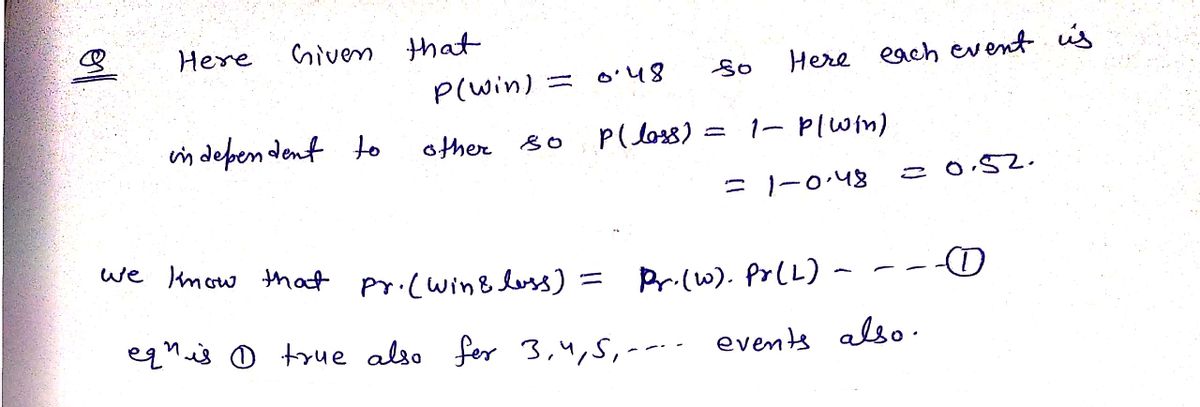 Q Here Given that
P(win) = 0.48 so Here each event is
independent to other so P(loss) = 1- P(win)
= 1-0.48 = 0.52.
we know that Pr.(win & loss) = Pr.(W). Pr(L) - - - - ①
eqⁿ is ① true also for 3,4,5,---- events also.